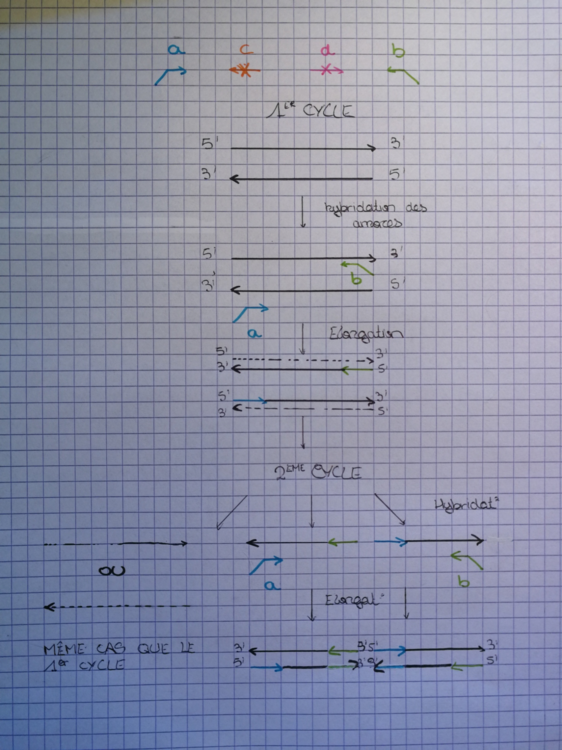 a c d b
1ère CYCLE
5' 3'
3' 5'
hybridation des
amorces
5' 3'
b
3' 5'
a
Elongation
5' 3'
3' 5'
5' 3'
3' 5'
2ÈME CYCLE
Hybridat°
OU
a b
Elongat°
MÊME CAS QUE LE
1er CYCLE
3' 3'5' 3'
5' 3' 5'